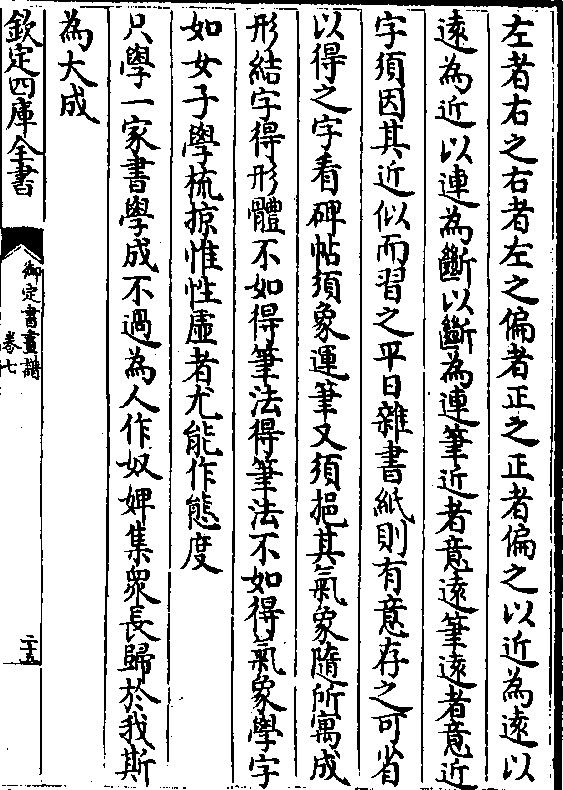 左者右之右者左之偏者正之正者偏之以近為遠以
遠為近以連為斷以斷為連筆近者意遠筆遠者意近
字須因其近似而習之平日雜書紙則有意存之可省
以得之字看碑帖須象運筆又須挹其氣象隨所寓成
形結字得形體不如得筆法得筆法不如得氣象學字
如女子學梳掠惟性虛者尤能作態度
只學一家書學成不過為人作奴婢集眾長歸於我斯
為大成
欽定四庫全書
御定書畫譜
卷七
二十五